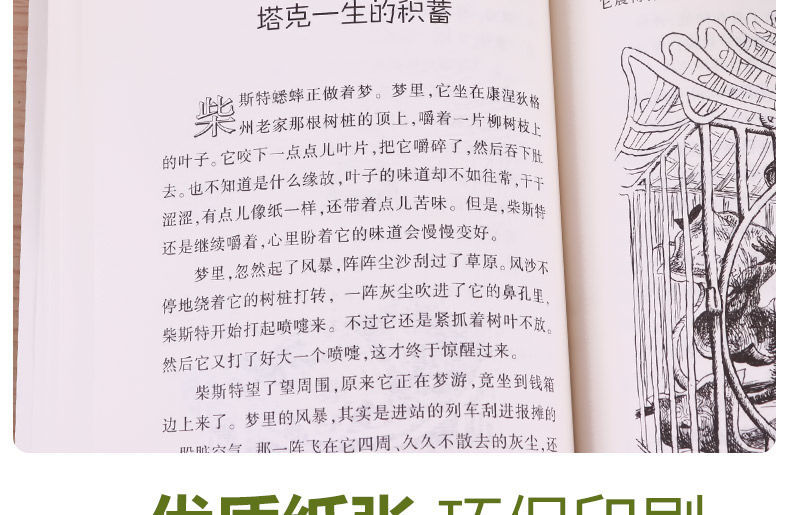 塔克一生的积蓄
柴斯特蟋蟀正做着梦。梦里，它坐在康涅狄格
州老家那根树桩的顶上，嚼着一片柳树枝上
的叶子。它咬下一点点儿叶片，把它嚼碎了，然后吞下肚
去。也不知道是什么缘故，叶子的味道却不如往常，干干
涩涩，有点儿像纸一样，还带着点儿苦味。但是，柴斯特
还是继续嚼着，心里盼着它的味道会慢慢变好。
梦里，忽然起了风暴，阵阵尘沙刮过了草原。风沙不
停地绕着它的树桩打转，一阵灰尘吹进了它的鼻孔里，
柴斯特开始打起喷嚏来。不过它还是紧抓着树叶不放。
然后它又打了好大一个喷嚏，这才终于惊醒过来。
柴斯特望了望周围，原来它正在梦游，竟坐到钱箱
边上来了。梦里的风暴，其实是进站的列车刮进报摊的
一股脏空气，那一阵飞在它四周、久久不散去的灰尘，还
优质纸张 环保印刷